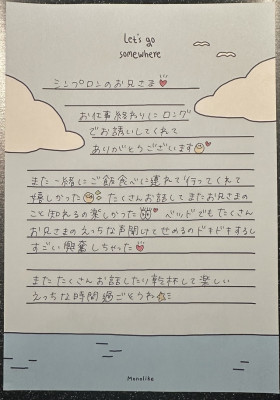 Let's go
somewhere
シンプロンのお兄さま
お仕事終わりにロング
でお誘いしてくれて
ありがとうございます
また一緒にご飯食べに連れて行ってくれて
嬉しかった たくさんお話してまたお兄さまの
こと知れるの楽しかった ベッドでもたくさん
お兄さまのえっちな声聞けてせめるのドキドキするし
すごい興奮しちゃった
またたくさんお話したり乾杯して楽しい
えっちな時間過ごそうね
Monolike